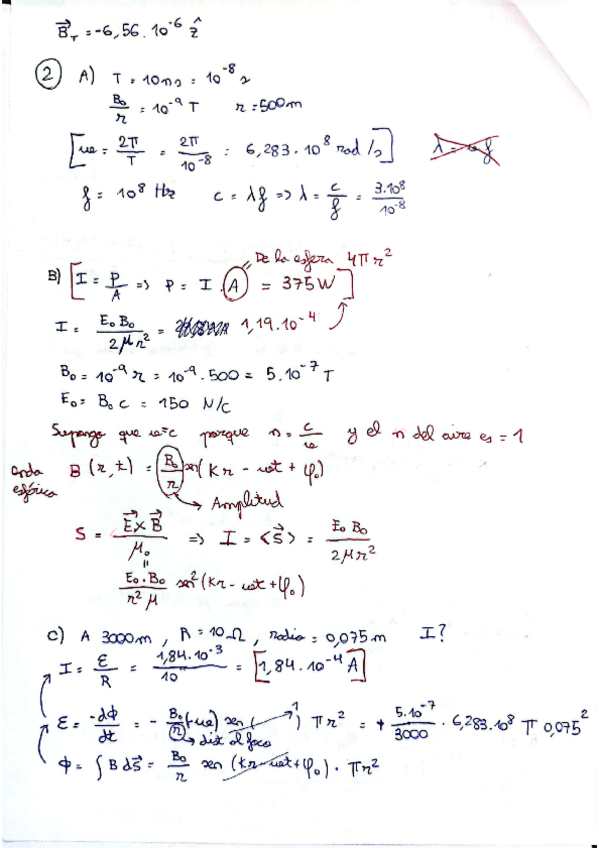 B⃗_T = -6,56.10^-6 ẑ
② A) T = 10ns = 10^-8 s
B₀/r = 10^-9 T   r = 500m
[ω = 2π/T = 2π/10^-8 = 6,283.10^8 rad/s]
f = 10^8 Hz   c = λf => λ = c/f = 3.10^8/10^-8
De la esfera 4πr²
B) [I = P/A => P = I . A = 375W]
I = E₀B₀/2μr² = 1,19.10^-4
B₀ = 10^-9 r = 10^-9 . 500 = 5.10^-7 T
E₀ = B₀ c = 150 N/C
Supongo que v=c porque n = c/v y el n del aire es = 1
onda esférica B (r,t) = B₀/r sen(Kr - ωt + φ₀)
Amplitud
S = E⃗×B⃗/μ₀ => I = <S⃗> = E₀B₀/2μr²
=
E₀.B₀/r²μ sen²(Kr - ωt + φ₀)
C) A 3000m, R = 10Ω, radio = 0,075m   I?
I = ε/R = 1,84.10^-3/10 = [1,84.10^-4 A]
ε = -dΦ/dt = - B₀/r (-ω) sen ( ) 1 πr² = + 5.10^-7/3000 . 6,283.10^8 π 0,075²
dist al foco
Φ = ∫ B dS⃗ = B₀/r sen (Kr - ωt + φ₀) . πr²